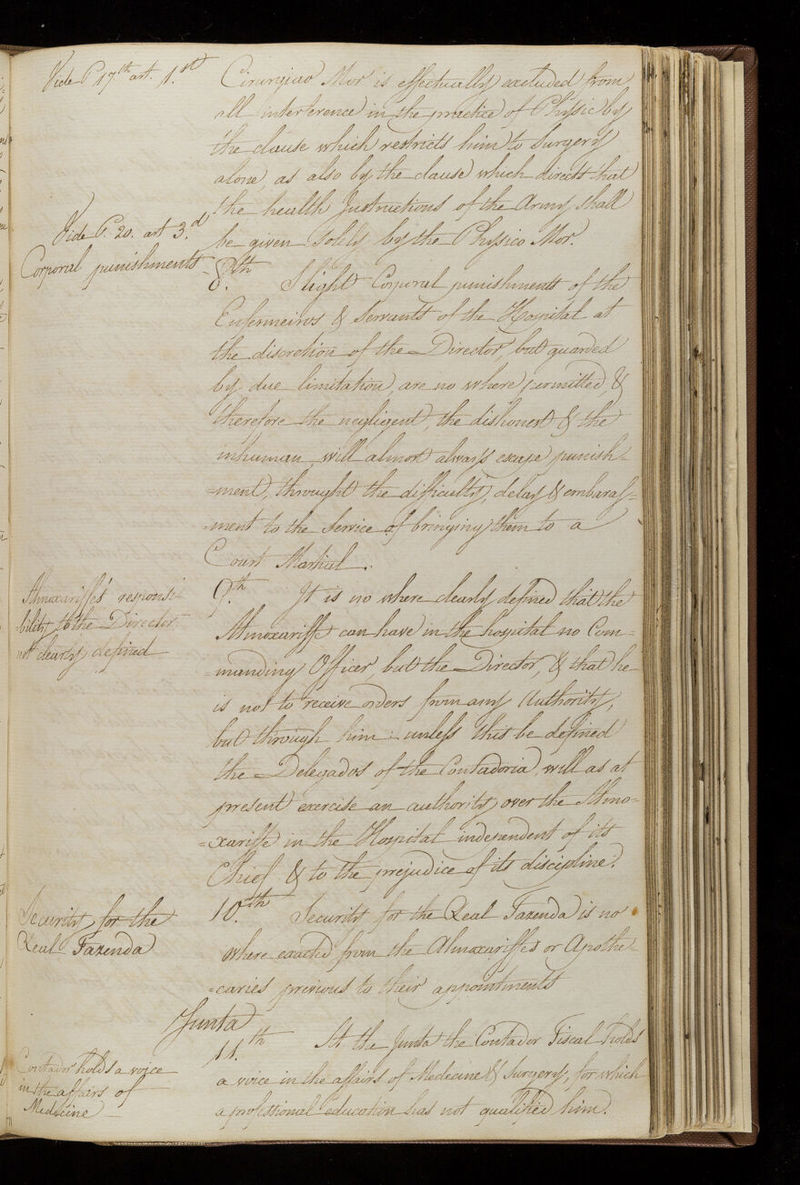 Vide P 17th art. 1.st
Cirurgiao Mor is effectually excluded from
all interference in the practice of Physic by
the clause which restricts him to Surgery
alone, as also by the clause which directs that
the health Instructions of the Army shall
be given Solely by the Physico Mor.
Vide P. 20. art 3.d
Corporal punishments
8.th Slight Corporal punishments of the
Enfermeiros & Servants of the Hospital at
the discretion of the Director, but guarded
by due limitation, are no where permitted, &
therefore the negligent, the dishonest & the
inhuman will almost always escape punish-
=ment, throught the difficulty, delay & embarass=
=ment to the Service of bringing them to a
Court Martial.
Almoxariffs' responsi=
bility to the Director
not clearly defined
9.th It is no where clearly defined that the
Almoxariffe can have in the hospital no Com=
=manding Officer, but the Director, & that he
is not to receive orders from any Authority,
but through him: unless this be defined
the Delegados of the Contadoria, will as at
present exercise an authority over the Almo=
=xariffe in the Hospital independent of its
Chief & to the prejudice of its discipline.
Security for the
Real Fazenda
10.th Security for the Real Fazenda is no
where exacted from the Almoxariffes or Apothe=
=caries previous to their appointments
Junta
Contador holds a voice
in the affairs of
Medicine
11.th At the Junta the Contador Fiscal holds
a voice in the affairs of Medicine & Surgery, for which
a professional education has not qualified him.